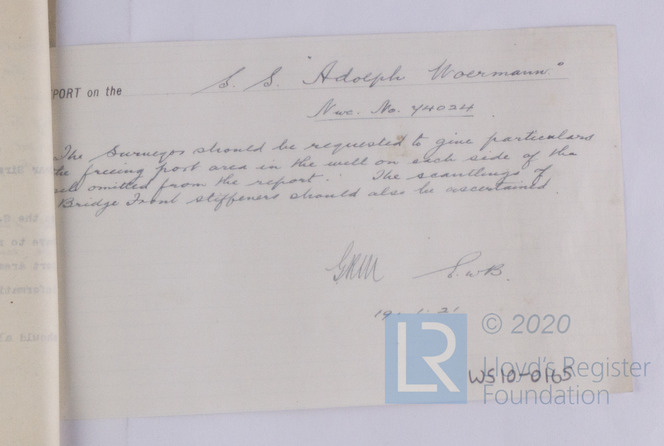 PORT on the S. S. "Adolph Woermann"
Nwc. No. 74024
The Surveyor should be requested to give particulars
the freeing port area in the well on each side of the
omitted from the report. The scantlings of
Bridge Front stiffeners should also be ascertained.
S.W.B.
LR
© 2020
Lloyd's Register
Foundation
WS10-0165